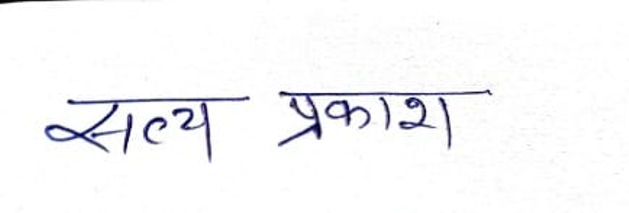 सत्य प्रकाश